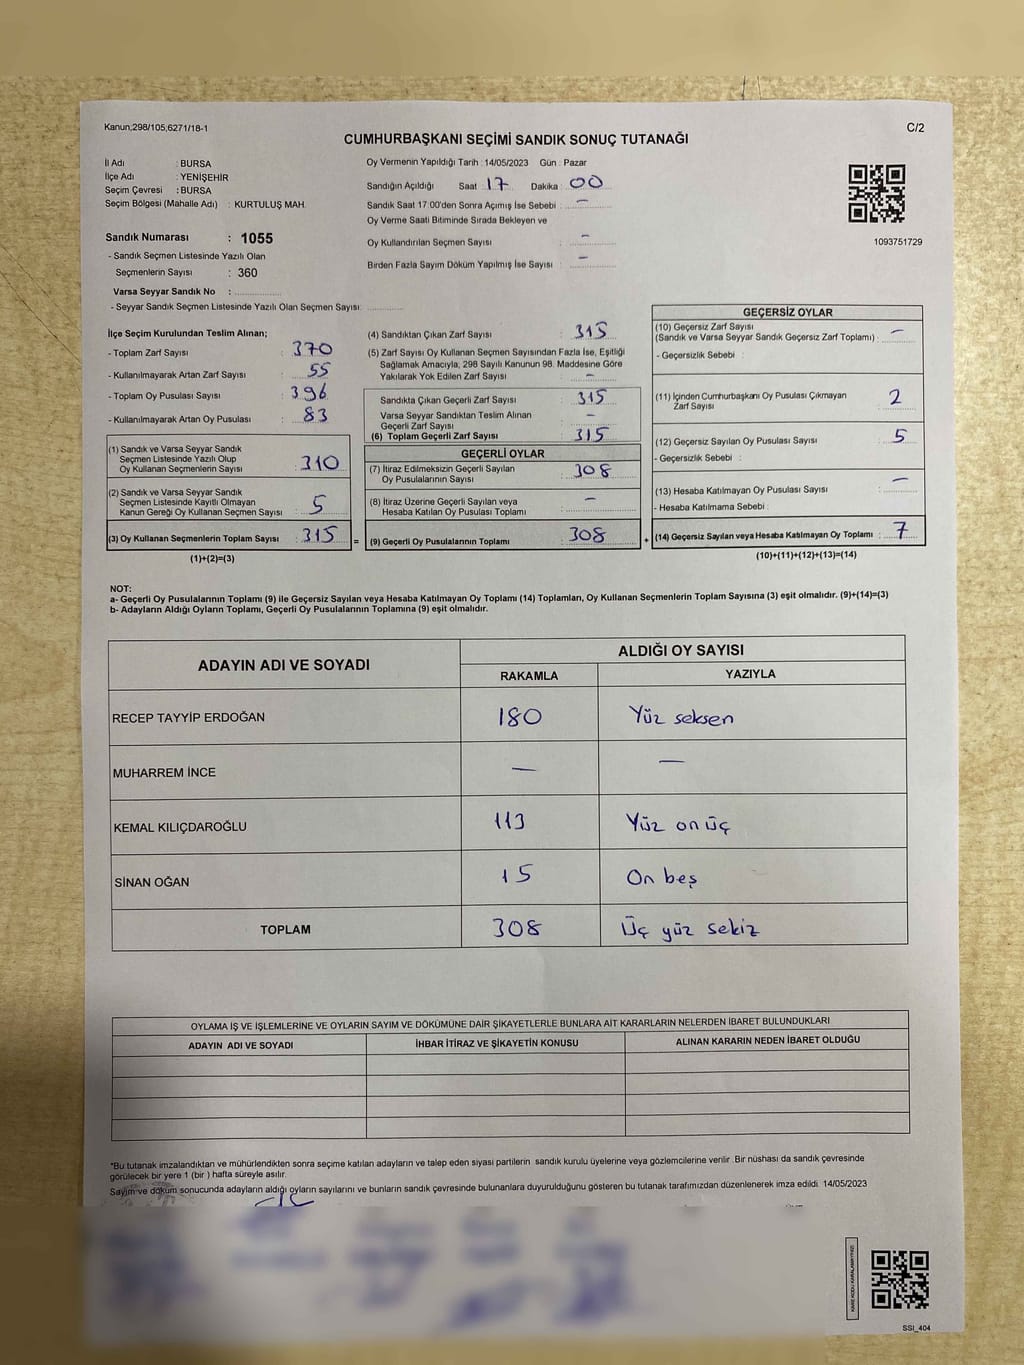 Kanun;298/105;6271/18-1
C/2
CUMHURBAŞKANI SEÇİMİ SANDIK SONUÇ TUTANAĞI
İl Adı : BURSA
İlçe Adı : YENİŞEHİR
Seçim Çevresi : BURSA
Seçim Bölgesi (Mahalle Adı) : KURTULUŞ MAH.
Oy Vermenin Yapıldığı Tarih : 14/05/2023 Gün : Pazar
Sandığın Açıldığı Saat 17 Dakika : 00
Sandık Saat 17:00'den Sonra Açımış İse Sebebi : –
Oy Verme Saati Bitiminde Sırada Bekleyen ve
Oy Kullandırılan Seçmen Sayısı : –
Birden Fazla Sayım Döküm Yapılmış İse Sayısı : –
1093751729
Sandık Numarası : 1055
- Sandık Seçmen Listesinde Yazılı Olan
Seçmenlerin Sayısı : 360
Varsa Seyyar Sandık No :
- Seyyar Sandık Seçmen Listesinde Yazılı Olan Seçmen Sayısı:
İlçe Seçim Kurulundan Teslim Alınan;
- Toplam Zarf Sayısı : 370
- Kullanılmayarak Artan Zarf Sayısı : 55
- Toplam Oy Pusulası Sayısı : 396
- Kullanılmayarak Artan Oy Pusulası : 83
(1) Sandık ve Varsa Seyyar Sandık
Seçmen Listesinde Yazılı Olup
Oy Kullanan Seçmenlerin Sayısı : 310
(2) Sandık ve Varsa Seyyar Sandık
Seçmen Listesinde Kayıtlı Olmayan
Kanun Gereği Oy Kullanan Seçmen Sayısı : 5
(3) Oy Kullanan Seçmenlerin Toplam Sayısı : 315 =
(1)+(2)=(3)
(4) Sandıktan Çıkan Zarf Sayısı : 315
(5) Zarf Sayısı Oy Kullanan Seçmen Sayısından Fazla İse, Eşitliği
Sağlamak Amacıyla; 298 Sayılı Kanunun 98. Maddesine Göre
Yakılarak Yok Edilen Zarf Sayısı : –
Sandıkta Çıkan Geçerli Zarf Sayısı : 315
Varsa Seyyar Sandıktan Teslim Alınan
Geçerli Zarf Sayısı : –
(6) Toplam Geçerli Zarf Sayısı : 315
GEÇERLİ OYLAR
(7) İtiraz Edilmeksizin Geçerli Sayılan
Oy Pusulalarının Sayısı : 308
(8) İtiraz Üzerine Geçerli Sayılan veya
Hesaba Katılan Oy Pusulası Toplamı : –
(9) Geçerli Oy Pusulalarının Toplamı : 308 +
GEÇERSİZ OYLAR
(10) Geçersiz Zarf Sayısı
(Sandık ve Varsa Seyyar Sandık Geçersiz Zarf Toplamı) : –
- Geçersizlik Sebebi :
(11) İçinden Cumhurbaşkanı Oy Pusulası Çıkmayan
Zarf Sayısı : 2
(12) Geçersiz Sayılan Oy Pusulası Sayısı : 5
- Geçersizlik Sebebi :
(13) Hesaba Katılmayan Oy Pusulası Sayısı : –
- Hesaba Katılmama Sebebi :
(14) Geçersiz Sayılan veya Hesaba Katılmayan Oy Toplamı : 7
(10)+(11)+(12)+(13)=(14)
NOT:
a- Geçerli Oy Pusulalarının Toplamı (9) ile Geçersiz Sayılan veya Hesaba Katılmayan Oy Toplamı (14) Toplamları, Oy Kullanan Seçmenlerin Toplam Sayısına (3) eşit olmalıdır. (9)+(14)=(3)
b- Adayların Aldığı Oyların Toplamı, Geçerli Oy Pusulalarının Toplamına (9) eşit olmalıdır.
ADAYIN ADI VE SOYADI
ALDIĞI OY SAYISI
RAKAMLA YAZIYLA
RECEP TAYYİP ERDOĞAN 180 Yüz seksen
MUHARREM İNCE — —
KEMAL KILIÇDAROĞLU 113 Yüz on üç
SİNAN OĞAN 15 On beş
TOPLAM 308 Üç yüz sekiz
OYLAMA İŞ VE İŞLEMLERİNE VE OYLARIN SAYIM VE DÖKÜMÜNE DAİR ŞİKAYETLERLE BUNLARA AİT KARARLARIN NELERDEN İBARET BULUNDUKLARI
ADAYIN ADI VE SOYADI İHBAR İTİRAZ VE ŞİKAYETİN KONUSU ALINAN KARARIN NEDEN İBARET OLDUĞU
*Bu tutanak imzalandıktan ve mühürlendikten sonra seçime katılan adayların ve talep eden siyasi partilerin sandık kurulu üyelerine veya gözlemcilerine verilir. Bir nüshası da sandık çevresinde
görülecek bir yere 1 (bir ) hafta süreyle asılır.
Sayım ve döküm sonucunda adayların aldığı oyların sayılarını ve bunların sandık çevresinde bulunanlara duyurulduğunu gösteren bu tutanak tarafımızdan düzenlenerek imza edildi. 14/05/2023
KARE KODU KARALAMAYINIZ!
SSI_404